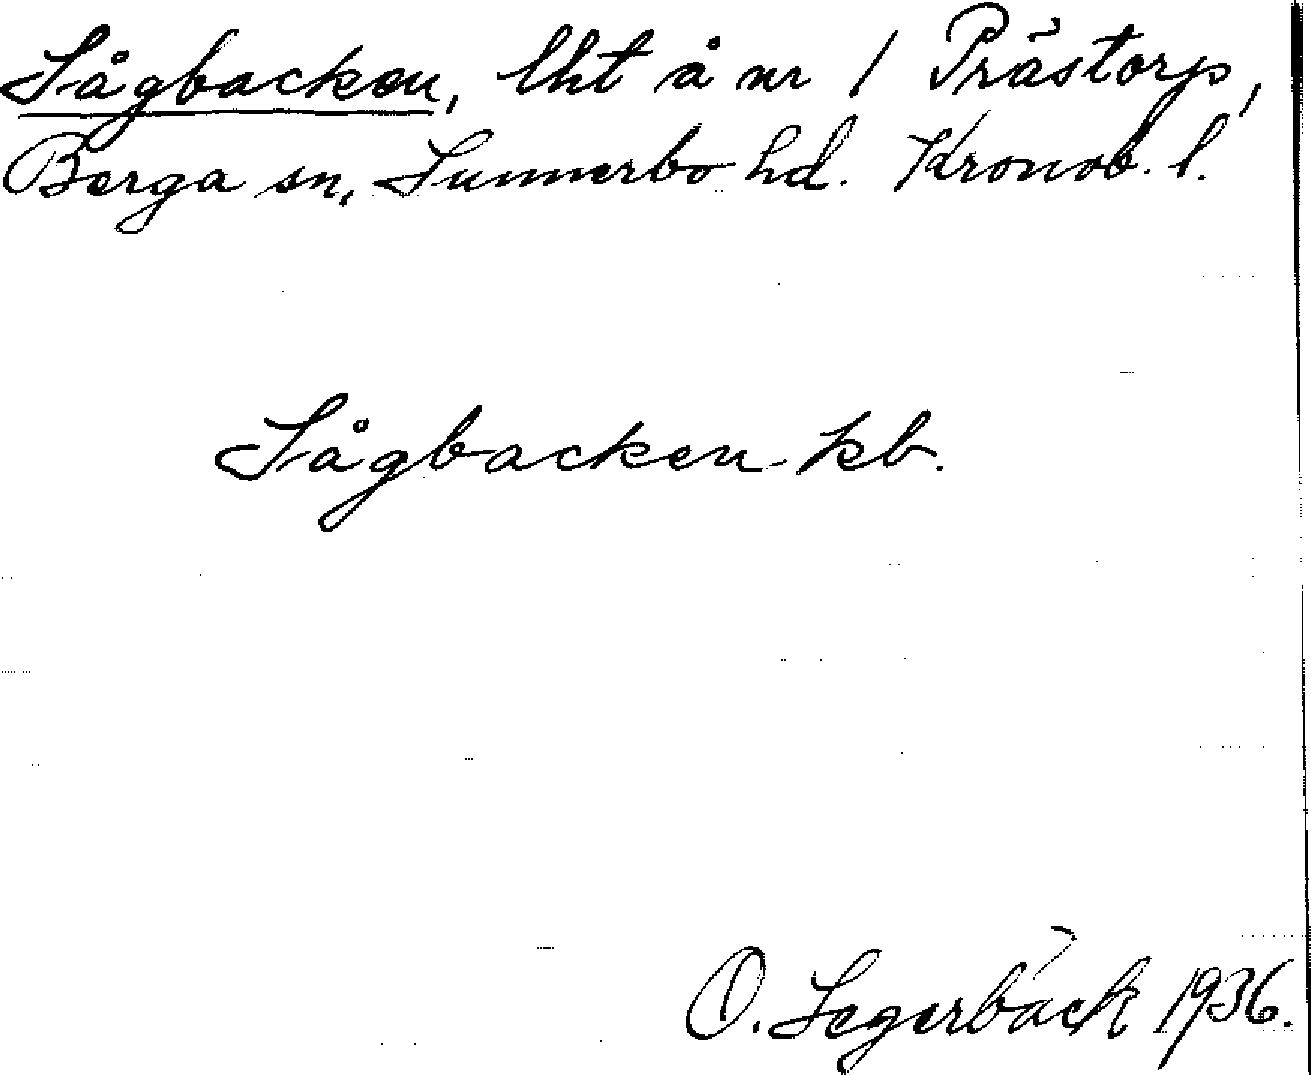 Sågbacken, lht å nr 1 Prästorp,
Berga sn, Sunnerbo hd. Kronob. l.
Sågbacken kb.
O. Segerbäck 1936.